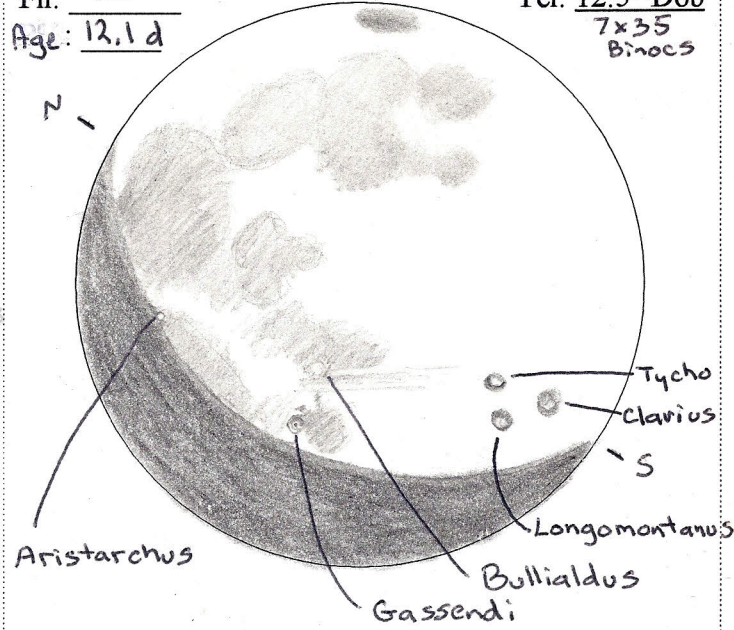 Age: 12.1 d
Tel: 12.5" Dob
7x35
Binocs
N
Tycho
Clavius
S
Longomontanus
Aristarchus
Bullialdus
Gassendi